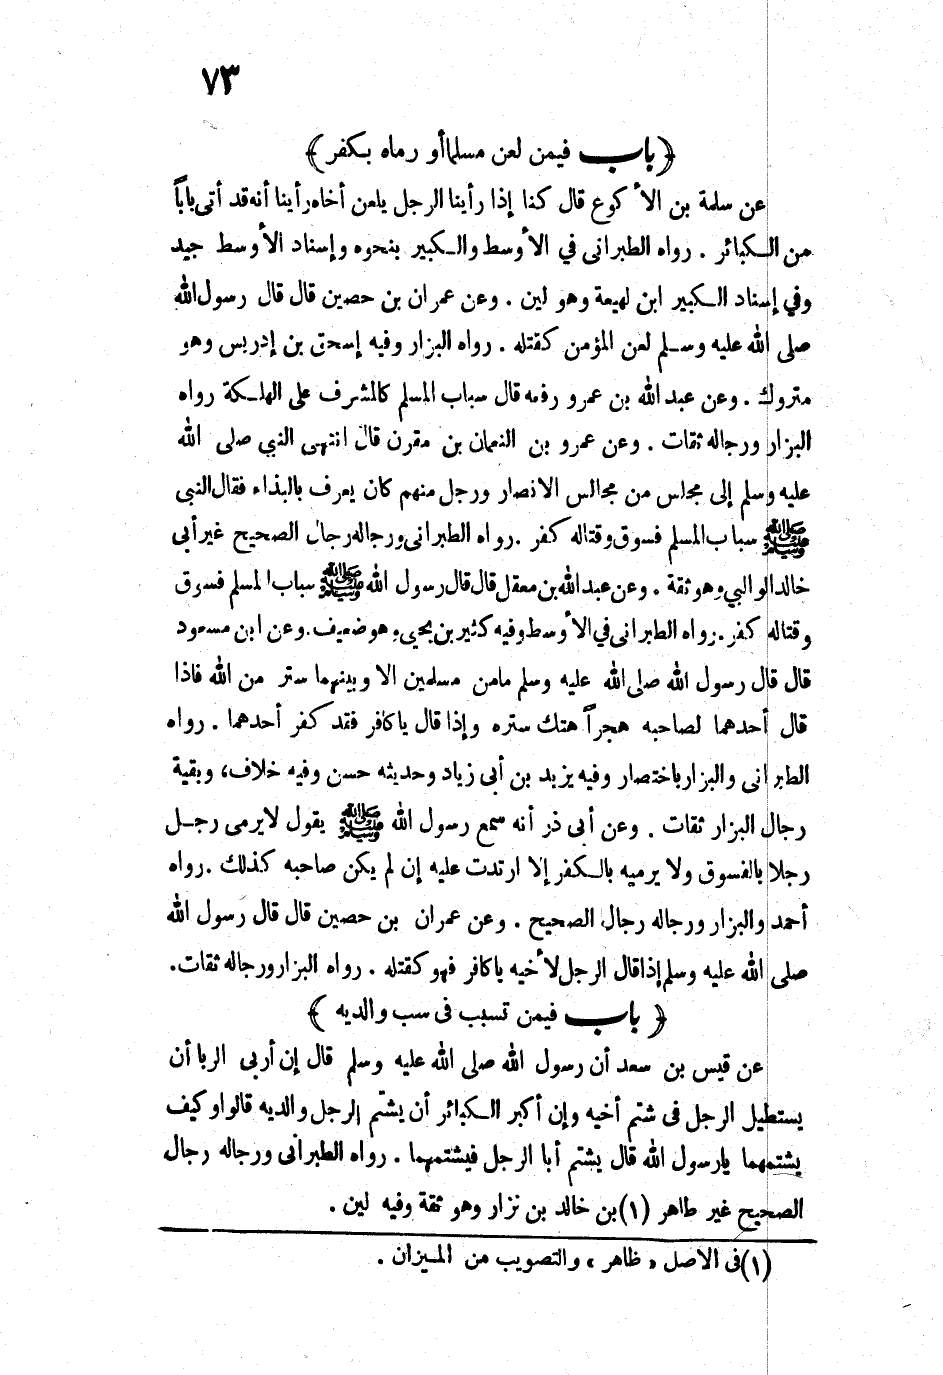 ٧٣
﴿ باب فيمن لعن مسلما أو رماه بكفر ﴾
عن سلمة بن الأكوع قال كنا إذا رأينا الرجل يلعن أخاه رأينا أنه قد أتى باباً
من الكبائر . رواه الطبرانى في الأوسط والكبير بنحوه وإسناد الأوسط جيد
وفي إسناد الكبير ابن لهيعة وهو لين . وعن عمران بن حصين قال قال رسول الله
صلى الله عليه وسلم لعن المؤمن كقتله . رواه البزار وفيه إسحق بن إدريس وهو
متروك . وعن عبد الله بن عمرو رفعه قال سباب المسلم كالمشرف على الهلكة رواه
البزار ورجاله ثقات . وعن عمرو بن النعمان بن مقرن قال انتهى النبي صلى الله
عليه وسلم إلى مجلس من مجالس الانصار ورجل منهم كان يعرف بالبذاء فقال النبى
ﷺ سباب المسلم فسوق وقتاله كفر . رواه الطبرانى ورجاله رجال الصحيح غير أبى
خالد الوالبي وهو ثقة . وعن عبد الله بن مغفل قال قال رسول الله ﷺ سباب المسلم فسوق
وقتاله كفر . رواه الطبرانى في الأوسط وفيه كثير بن يحيى وهو ضعيف . وعن ابن مسعود
قال قال رسول الله صلى الله عليه وسلم مامن مسلمين الا وبينهما ستر من الله فاذا
قال أحدهما لصاحبه هجراً هتك ستره وإذا قال يا كافر فقد كفر أحدهما . رواه
الطبرانى والبزار باختصار وفيه يزيد بن أبى زياد وحديثه حسن وفيه خلاف، وبقية
رجال البزار ثقات . وعن أبى ذر أنه سمع رسول الله ﷺ يقول لايرمى رجل
رجلا بالفسوق ولا يرميه بالكفر إلا ارتدت عليه إن لم يكن صاحبه كذلك . رواه
أحمد والبزار ورجاله رجال الصحيح . وعن عمران بن حصين قال قال رسول الله
صلى الله عليه وسلم إذا قال الرجل لأخيه يا كافر فهو كقتله . رواه البزار ورجاله ثقات .
﴿ باب فيمن تسبب فى سب والديه ﴾
عن قيس بن سعد أن رسول الله صلى الله عليه وسلم قال إن أربى الربا أن
يستطيل الرجل فى شتم أخيه وإن أكبر الكبائر أن يشتم الرجل والديه قالوا وكيف
يشتمهما يارسول الله قال يشتم أبا الرجل فيشتمهما . رواه الطبرانى ورجاله رجال
الصحيح غير طاهر (١) بن خالد بن نزار وهو ثقة وفيه لين .
(١) فى الاصل « ظاهر » والتصويب من الميزان .